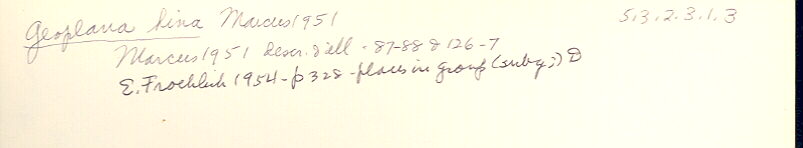 Geoplana hina Marcus 1951 5.3.2.3.1.3
Marcus 1951 descr. & ill - 87-88 & 126-7
E. Froehlich 1954 - p 328 - places in group (subg;) D